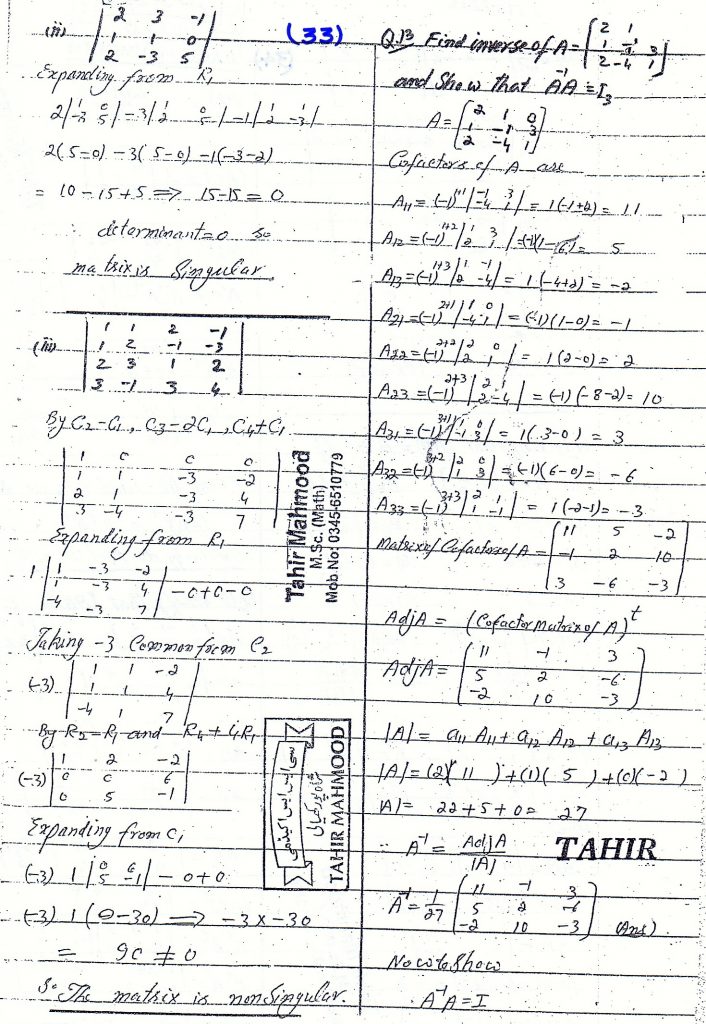 (33)
(ii) | 2 3 -1 |
| 1 1 0 |
| 2 -3 5 |
Expanding from R₁
2| 1 0 ; -3 5 | -3| 1 0 ; 2 5 | -1| 1 1 ; 2 -3 |
2(5-0) -3(5-0) -1(-3-2)
= 10-15+5 => 15-15=0
∴ determinant=0 so
matrix is Singular.
(iii) | 1 1 2 -1 |
| 1 2 -1 -3 |
| 2 3 1 2 |
| 3 -1 3 4 |
By C₂-C₁, C₃-2C₁, C₄+C₁
| 1 0 0 0 |
| 1 1 -3 -2 |
| 2 1 -3 4 |
| 3 -4 -3 7 |
Expanding from R₁
1 | 1 -3 -2 |
| 1 -3 4 | -0+0-0
| -4 -3 7 |
Taking -3 Common from C₂
(-3) | 1 1 -2 |
| 1 1 4 |
| -4 1 7 |
By R₂-R₁ and R₄+4R₁
(-3) | 1 2 -2 |
| 0 0 6 |
| 0 5 -1 |
Expanding from C₁
(-3) 1 | 0 6 ; 5 -1 | -0+0
(-3) 1 (0-30) => -3x-30
= 90 ≠ 0
So The matrix is nonSingular.
Tahir Mahmood
M.Sc. (Math)
Mob No: 0345-6510779
سی ایس ایس اکیڈمی
TAHIR MAHMOOD
Q.13 Find inverse of A = [ 2 1
1 -1 3
2 -4 1 ]
and Show that A⁻¹A = I₃
A = [ 2 1 0
1 -1 3
2 -4 1 ]
Cofactors of A are
A₁₁ = (-1)¹⁺¹ | -1 3 ; -4 1 | = 1(-1+12) = 11
A₁₂ = (-1)¹⁺² | 1 3 ; 2 1 | = (-1)(1-6) = 5
A₁₃ = (-1)¹⁺³ | 1 -1 ; 2 -4 | = 1(-4+2) = -2
A₂₁ = (-1)²⁺¹ | 1 0 ; -4 1 | = (-1)(1-0) = -1
A₂₂ = (-1)²⁺² | 2 0 ; 2 1 | = 1(2-0) = 2
A₂₃ = (-1)²⁺³ | 2 1 ; 2 -4 | = (-1)(-8-2) = 10
A₃₁ = (-1)³⁺¹ | 1 0 ; -1 3 | = 1(3-0) = 3
A₃₂ = (-1)³⁺² | 2 0 ; 1 3 | = (-1)(6-0) = -6
A₃₃ = (-1)³⁺³ | 2 1 ; 1 -1 | = 1(-2-1) = -3
Matrix of Cofactors of A = [ 11 5 -2
-1 2 10
3 -6 -3 ]
AdjA = (Cofactor Matrix of A)ᵗ
AdjA = [ 11 -1 3
5 2 -6
-2 10 -3 ]
|A| = a₁₁A₁₁ + a₁₂A₁₂ + a₁₃A₁₃
|A| = (2)(11) + (1)(5) + (0)(-2)
|A| = 22+5+0 = 27
A⁻¹ = AdjA / |A|
TAHIR
A⁻¹ = 1/27 [ 11 -1 3
5 2 -6
-2 10 -3 ] (Ans)
Now to Show
A⁻¹A = I